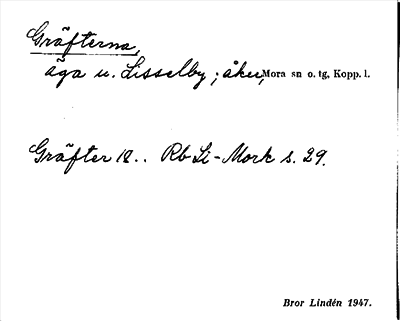 Gräfterna,
äga u. Lisselby; åker, Mora sn o. tg, Kopp. l.
Gräfter 18.. Rb Li-Mork s. 29.
Bror Lindén 1947.